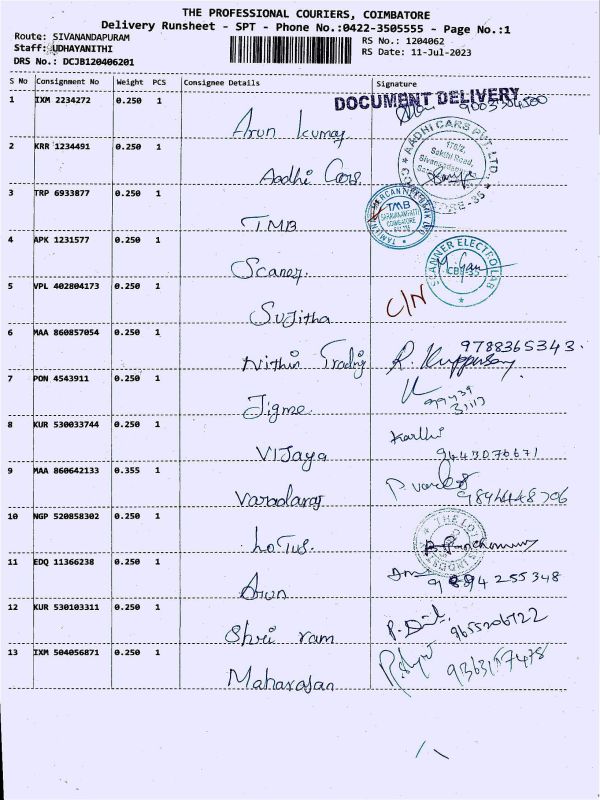 THE PROFESSIONAL COURIERS, COIMBATORE
Delivery Runsheet - SPT - Phone No.:0422-3505555 - Page No.:1
Route: SIVANANDAPURAM RS No.: 1204062
Staff: UDHAYANITHI RS Date: 11-Jul-2023
DRS No.: DCJB120406201
S No Consignment No Weight PCS Consignee Details Signature
1 IXM 2234272 0.250 1
DOCUMENT DELIVERY
Arun Kumar
2 KRR 1234491 0.250 1
AADHI CARS PVT. LTD.
Aadhi Cars.
3 TRP 6933877 0.250 1
TMB
TMB
4 APK 1231577 0.250 1
SCANNER ELECTRO LAB
CBE-35
5 VPL 402804173 0.250 1
C/N
Sujitha
6 MAA 860857054 0.250 1
Nithin Trading R. Kuppusamy 9788365343.
7 PON 4543911 0.250 1
Jigme.
8 KUR 530033744 0.250 1
Karthi
Vijaya 9443076671
9 MAA 860642133 0.355 1
Varadaraj
10 NGP 520858302 0.250 1
Lotus.
11 EDQ 11366238 0.250 1
Arun
12 KUR 530103311 0.250 1
Shri ram 9655206722
13 IXM 504056871 0.250 1
Maharajan